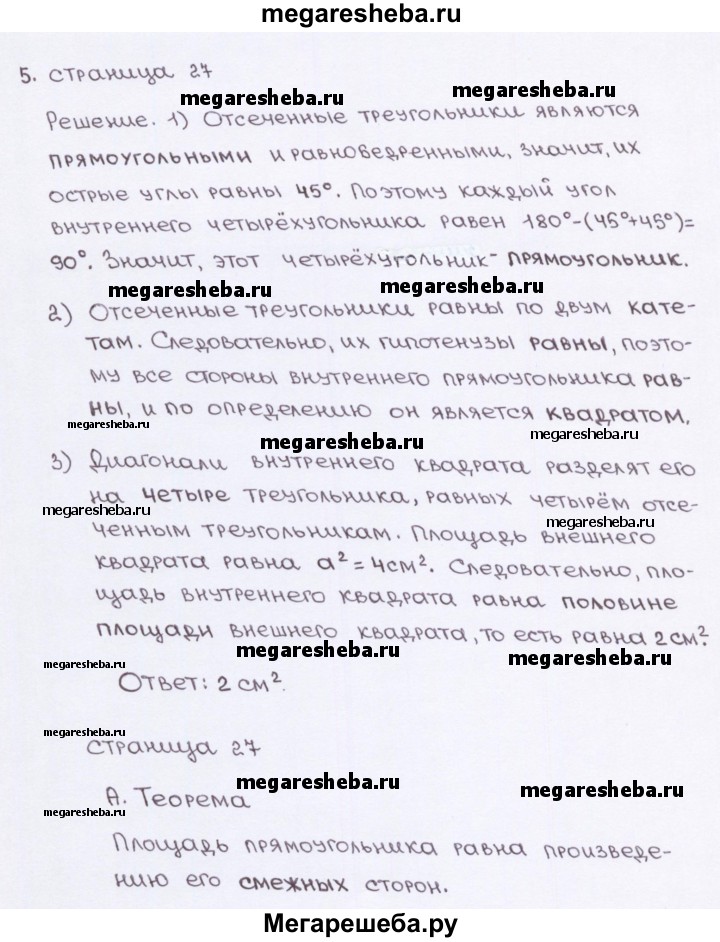 megaresheba.ru
5. страница 27
megaresheba.ru megaresheba.ru
Решение. 1) Отсеченные треугольники являются
прямоугольными и равнобедренными, значит, их
острые углы равны 45°. Поэтому каждый угол
внутреннего четырёхугольника равен 180°-(45°+45°)=
90°. Значит, этот четырёхугольник - прямоугольник.
megaresheba.ru megaresheba.ru
2) Отсеченные треугольники равны по двум кате-
там. Следовательно, их гипотенузы равны, поэто-
му все стороны внутреннего прямоугольника рав-
ны, и по определению он является квадратом.
megaresheba.ru megaresheba.ru megaresheba.ru
3) Диагонали внутреннего квадрата разделят его
на четыре треугольника, равных четырём отсе-
megaresheba.ru megaresheba.ru
ченным треугольникам. Площадь внешнего
квадрата равна a² = 4см². Следовательно, пло-
щадь внутреннего квадрата равна половине
площади внешнего квадрата, то есть равна 2см².
megaresheba.ru megaresheba.ru megaresheba.ru
Ответ: 2 см².
megaresheba.ru
страница 27
megaresheba.ru megaresheba.ru
А. Теорема
megaresheba.ru
Площадь прямоугольника равна произведе-
нию его смежных сторон.
Мегарешеба.ру